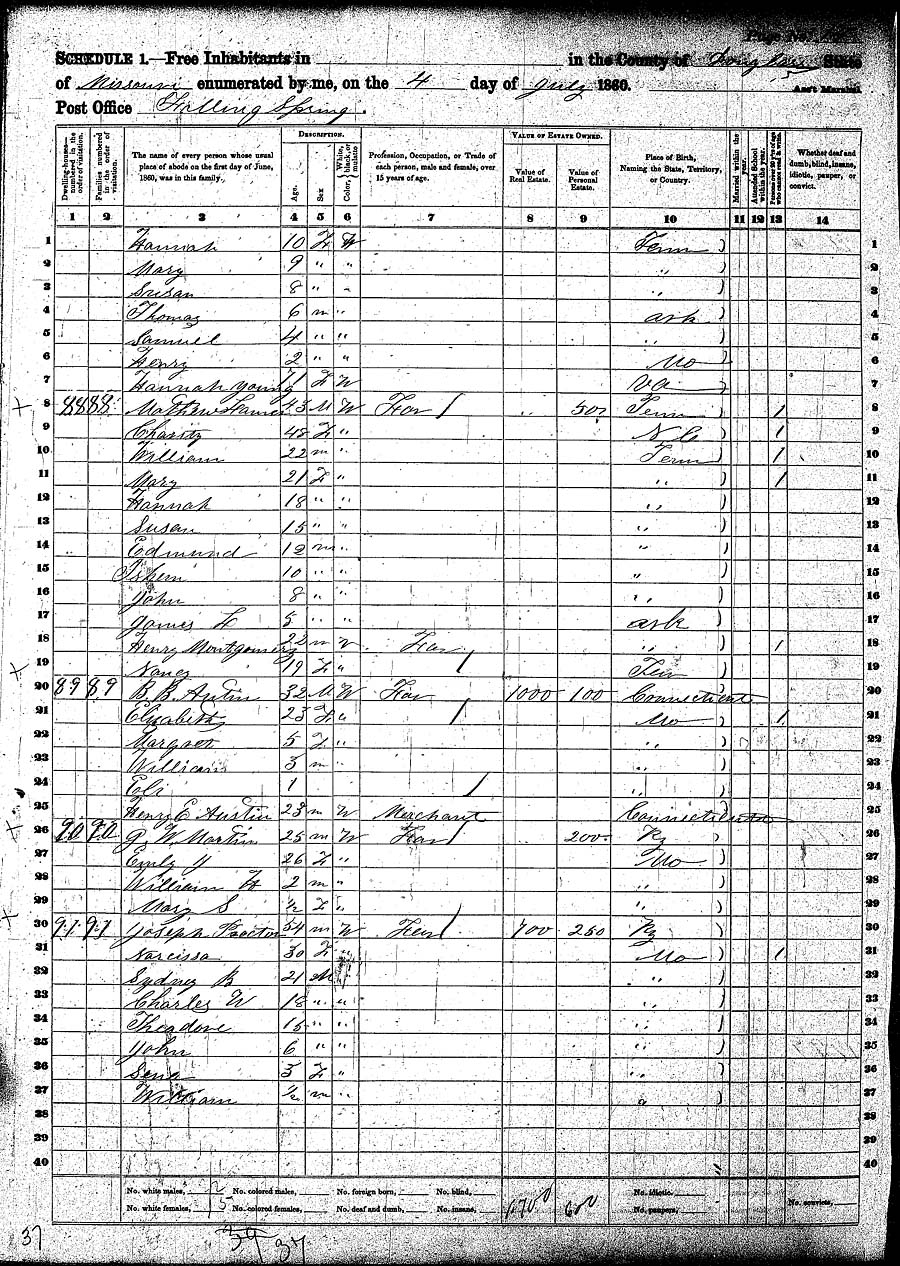 Page No.
SCHEDULE 1.—Free Inhabitants in in the County of Douglas State
of Missouri enumerated by me, on the 4 day of July 1860. Ass't Marshal
Post Office Falling Spring.
Dwelling-houses—numbered in the order of visitation.
Families numbered in the order of visitation.
The name of every person whose usual place of abode on the first day of June, 1860, was in this family.
DESCRIPTION.
Age.
Sex
Color, White, black, or mulatto
Profession, Occupation, or Trade of each person, male and female, over 15 years of age.
VALUE OF ESTATE OWNED.
Value of Real Estate.
Value of Personal Estate.
Place of Birth, Naming the State, Territory, or Country.
Married within the year.
Attended School within the year.
Persons over 20 y'rs of age who cannot read & write.
Whether deaf and dumb, blind, insane, idiotic, pauper, or convict.
1 2 3 4 5 6 7 8 9 10 11 12 13 14
1 Hannah 10 F W Tenn ) 1
2 Mary 9 " " " 2
3 Susan 8 " " " ) 3
4 Thomas 6 m " Ark ) 4
5 Samuel 4 " " " ) 5
6 Henry 2 " " Mo ) 6
7 Hannah Young 71 F W Va ) 7
8 88 88 Mathew 43 M W Far / Tenn ) 1 8
9 Charity 48 F " N C ) 1 9
10 William 22 m " Tenn ) 1 10
11 Mary 21 F " " ) 1 11
12 Hannah 18 " " " ) 12
13 Susan 15 " " " ) 13
14 Edmund 12 m " " ) 14
15 10 " " " ) 15
16 John 8 " " " ) 16
17 James 5 " " Ark ) 17
18 Henry Montgomery 22 m W Far " ) 1 18
19 Nancy 19 F " / Ten ) 19
20 89 89 B. B. Austin 32 M W Far 1000 100 Connecticut 20
21 Elizabeth 23 F " / Mo ) 1 21
22 Margret 5 F " " ) 22
23 William 3 m " " ) 23
24 Eli 1 / " ) 24
25 Henry E Austin 23 m W Merchant Connecticut 25
26 90 90 G. W. Martin 25 m W Far / 200 Ky ) 26
27 Emily 26 F " Mo ) 27
28 William H 2 m " " ) 28
29 Mary S ½ F " / " ) 29
30 91 91 Joseph Proctor 54 m W Far 700 250 Ky ) 30
31 Narcissa 30 F " Mo ) 1 31
32 Sydney B 21 M " " 32
33 Charles W 18 " " " 33
34 Theadore 15 " " " ) 34
35 John 6 " " " ) 35
36 Sena 3 F " " ) 36
37 William m " " ) 37
38 38
39 39
40 40
No. white males, No. colored males, No. foreign born, No. blind, No. idiotic,
No. white females, 15 No. colored females, No. deaf and dumb, No. insane, 1700 600 No. paupers, No. convicts,
37 39 37